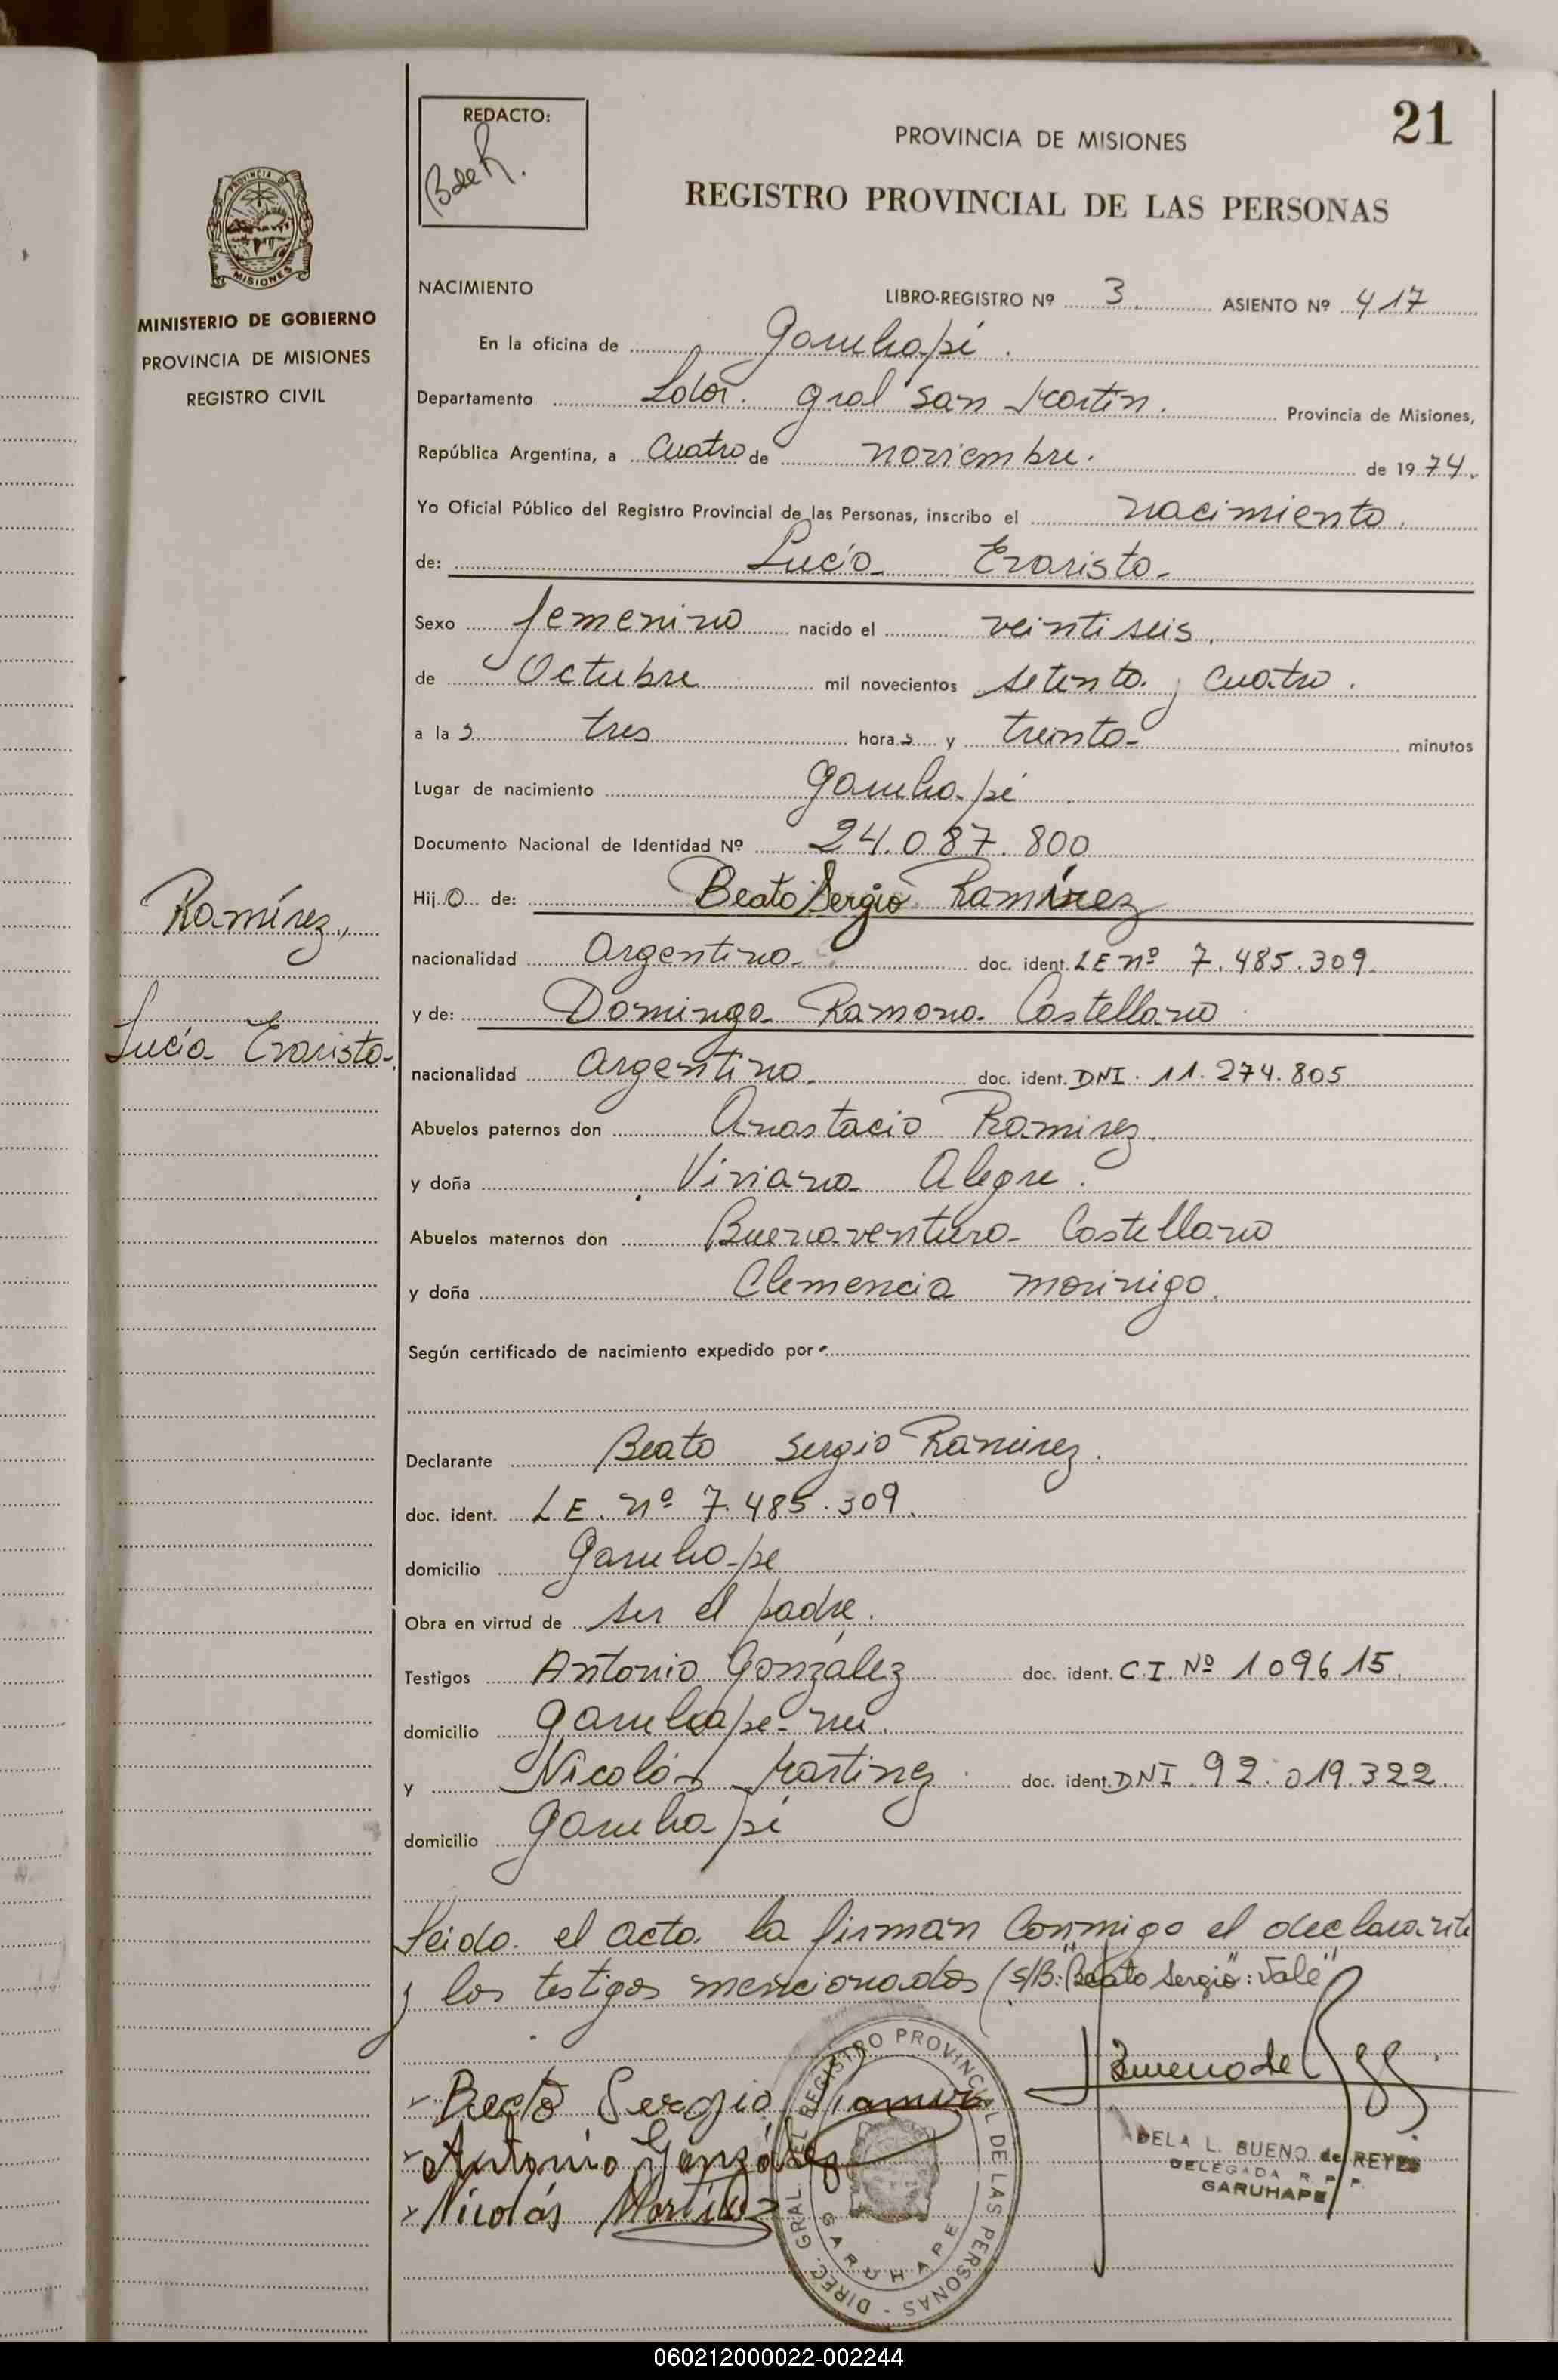 21
REDACTO:
B de R.
PROVINCIA DE MISIONES
REGISTRO PROVINCIAL DE LAS PERSONAS
PROVINCIA DE
MISIONES
MINISTERIO DE GOBIERNO
PROVINCIA DE MISIONES
REGISTRO CIVIL
NACIMIENTO
LIBRO-REGISTRO Nº 3 ASIENTO Nº 417
En la oficina de Garuhapé.
Departamento Ldor. Gral San Martín. Provincia de Misiones,
República Argentina, a cuatro de noviembre. de 1974.
Yo Oficial Público del Registro Provincial de las Personas, inscribo el nacimiento.
de: Lucía Evarista
Sexo femenino nacido el veintiseis.
de Octubre mil novecientos setenta y cuatro.
a las tres horas y treinta minutos
Lugar de nacimiento Garuhapé
Documento Nacional de Identidad Nº 24.087.800
Ramírez,
Lucía Evarista
Hija de: Beato Sergio Ramírez
nacionalidad Argentina doc. ident. LE nº 7.485.309.
y de: Dominga Ramona Castellano
nacionalidad Argentina doc. ident. DNI. 11.274.805
Abuelos paternos don Anastacio Ramirez.
y doña Viviana Alegre.
Abuelos maternos don Buenaventura Castellano
y doña Clemencia Morinigo.
Según certificado de nacimiento expedido por
Declarante Beato Sergio Ramirez.
doc. ident. L E. nº 7.485.309.
domicilio Garuhape
Obra en virtud de ser el padre.
Testigos Antonio González doc. ident. C.I. Nº 109615.
domicilio Garuhape-mi.
y Nicolás Martinez doc. ident. DNI 92.019.322.
domicilio Garuhapé
Leida el acta la firman conmigo el declarante
y los testigos mencionados (S/B: "Beato Sergio": Vale"
Beato Sergio Ramirez
Antonio González
Nicolás Martinez
DIREC. GRAL. DEL REGISTRO PROVINCIAL DE LAS PERSONAS -
GARUHAPE
Bueno de
ADELA L. BUENO de REYES
DELEGADA R. P. P.
GARUHAPE
060212000022-002244